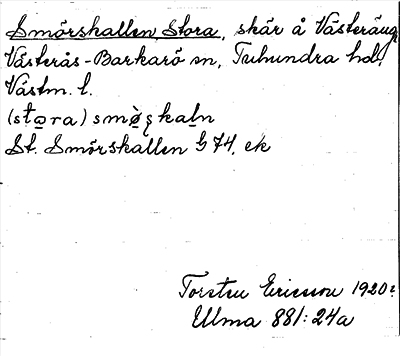 Smörskallen, Stora, skär å Västeräng,
Västerås-Barkarö sn, Tuhundra hd,
Västm. l.
(sto̲ra) smø̲̀ʂkaln̲
St. Smörskallen G 74, ek
Torsten Ericsson 1920:
Ulma 881:24a